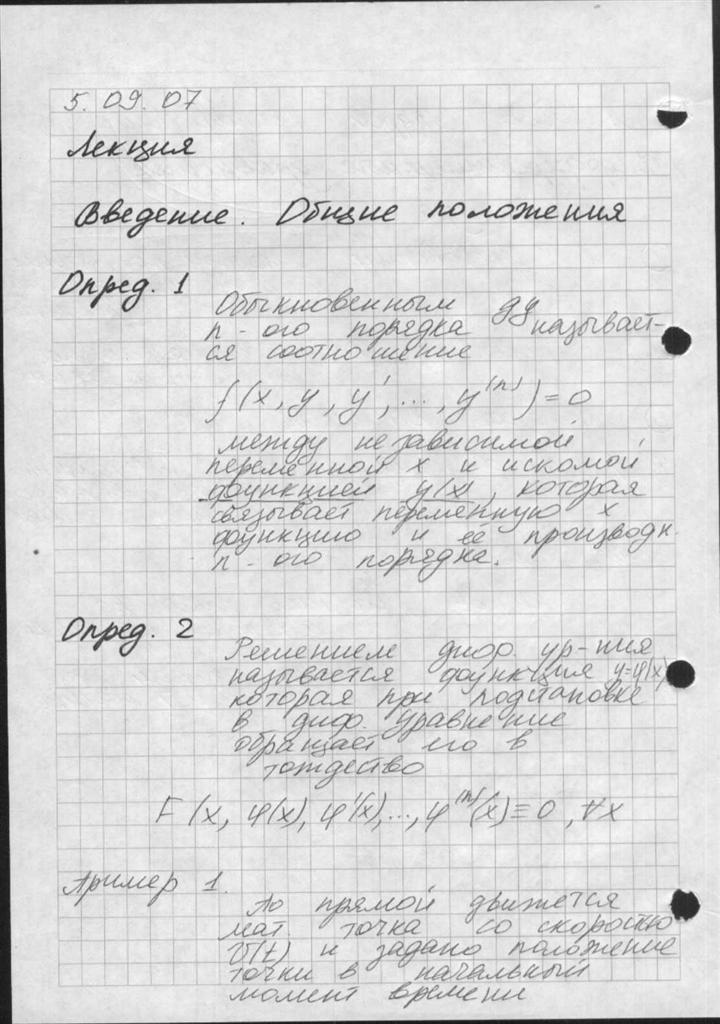 5. 09. 07
Лекция
Введение. Общие положения
Опред. 1
Обыкновенным ДУ
n-ого порядка называет-
ся соотношение
f(x, y, y', ..., y⁽ⁿ⁾) = 0
между независимой
переменной x и искомой
функцией y(x), которая
связывает переменную x
функцию и её производн.
n-ого порядка.
Опред. 2
Решением диф. ур-ния
называется функция y=φ(x)
которая при подстановке
в диф. уравнение
обращает его в
тождество
F(x, φ(x), φ'(x), ..., φ⁽ⁿ⁾(x) ≡ 0, ∀x
Пример 1.
По прямой движется
мат. точка со скоростью
v(t) и задано положение
точки в начальный
момент времени